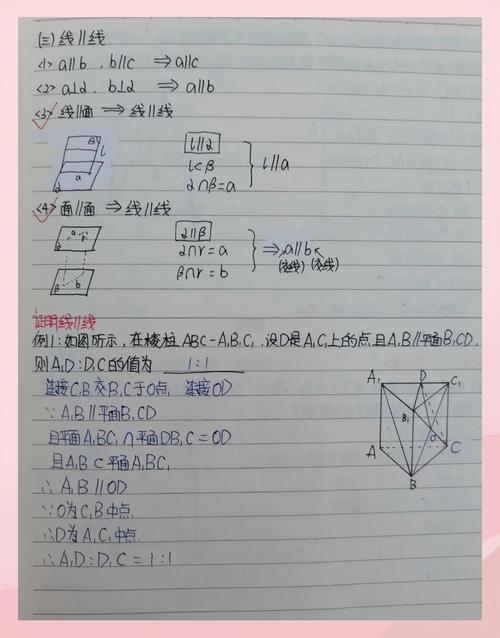 (三) 线∥线
<1> a∥b , b∥c ⇒ a∥c
<2> a⊥α , b⊥α ⇒ a∥b
<3> 线∥面 ⇒ 线∥线
β l a α
l∥α
l⊂β
α∩β=a
l∥a
<4> 面∥面 ⇒ 线∥线
a r b
α∥β
α∩r=a
β∩r=b
⇒ a∥b
(交线) (交线)
证明线∥线
例1:如图所示,在棱柱ABC-A₁B₁C₁,设D是A₁C₁上的点且A₁B∥平面B₁CD,
则A₁D:D₁C的值为 1:1
连接C₁B交B₁C于O点 连接OD
∵A₁B∥平面B₁CD
且平面A₁BC₁∩平面DB₁C=OD
且A₁B⊂平面A₁BC₁
∴A₁B∥OD
∵O为C₁B中点
∴D为A₁C₁中点
∴A₁D:D₁C=1:1
A₁ D C₁
B₁
O
A C
B